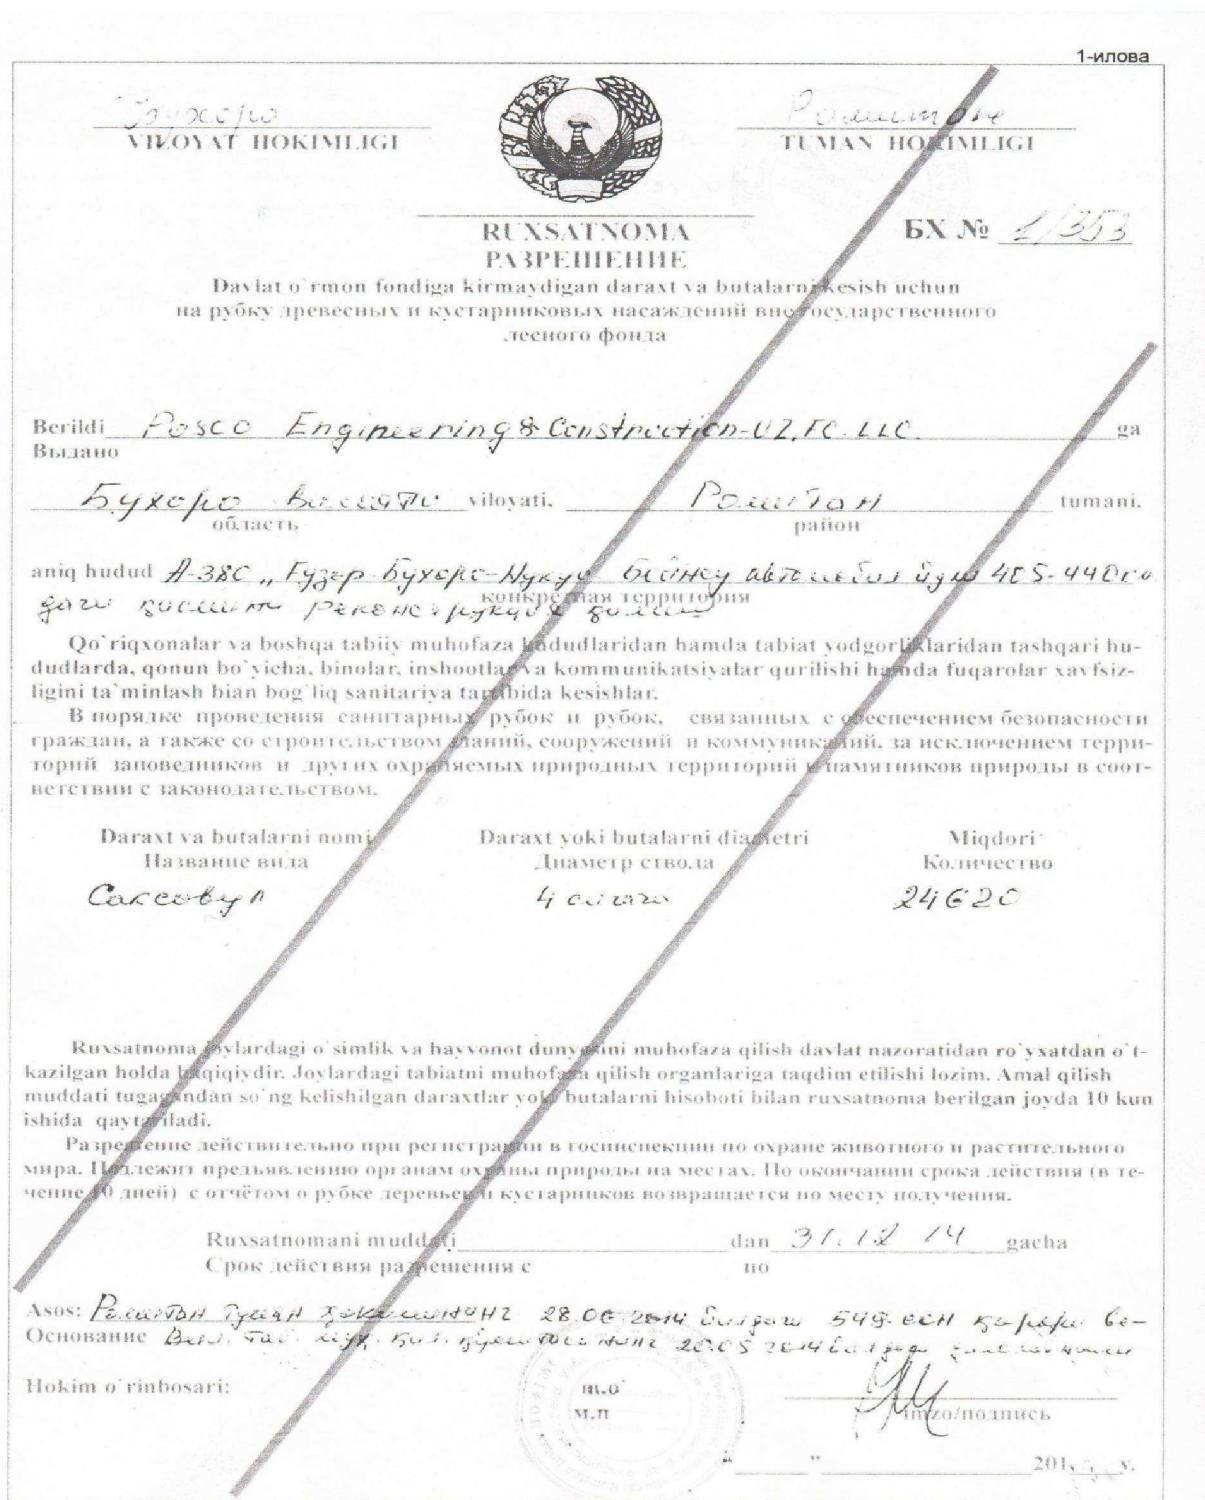 1-илова
Бухоро
VILOYAT HOKIMLIGI
Ромитон
TUMAN HOKIMLIGI
RUXSATNOMA
БХ № 1/353
РАЗРЕШЕНИЕ
Davlat o`rmon fondiga kirmaydigan daraxt va butalarni kesish uchun
на рубку древесных и кустарниковых насаждений вне государственного
лесного фонда
Berildi Posco Engineering & Construction-UZ, FC. LLC. ga
Выдано
Бухоро вилояти viloyati, Ромитан tumani,
область район
aniq hudud А-380 „Гузор-Бухоро-Нукус Бейнеу автомобил йули 405-440
конкретная территория
даги қисмини реконструкция
Qo`riqxonalar va boshqa tabiiy muhofaza hududlaridan hamda tabiat yodgorliklaridan tashqari hu-
dudlarda, qonun bo`yicha, binolar, inshootlar va kommunikatsiyalar qurilishi hamda fuqarolar xavfsiz-
ligini ta`minlash bian bog`liq sanitariya tartibida kesishlar.
В порядке проведения санитарных рубок и рубок, связанных с обеспечением безопасности
граждан, а также со строительством зданий, сооружений и коммуникаций, за исключением терри-
торий заповедников и других охраняемых природных территорий и памятников природы в соот-
ветствии с законодательством.
Daraxt va butalarni nomi Daraxt yoki butalarni diametri Miqdori
Название вида Диаметр ствола Количество
Саксовул 4 см гача 24620
Ruxsatnoma joylardagi o`simlik va hayvonot dunyosini muhofaza qilish davlat nazoratidan ro`yxatdan o`t-
kazilgan holda haqiqiydir. Joylardagi tabiatni muhofaza qilish organlariga taqdim etilishi lozim. Amal qilish
muddati tugagandan so`ng kelishilgan daraxtlar yoki butalarni hisoboti bilan ruxsatnoma berilgan joyda 10 kun
ishida qaytariladi.
Разрешение действительно при регистрации в госинспекции по охране животного и растительного
мира. Подлежит предъявлению органам охраны природы на местах. По окончании срока действия (в те-
чение 10 дней) с отчётом о рубке деревьев и кустарников возвращается по месту получения.
Ruxsatnomani muddati dan 31.12 14 gacha
Срок действия разрешения с по
Asos: Ромитан туман ҳокимининг 28.06 2014 йилдаги 549. сон қарори ва
Основание Вил. таб. муҳ. қил. қўмитасининг 20.05 2014 йилдаги
Hokim o`rinbosari:
m.o`
м.п
imzo/подпись
“ ” 201 y.